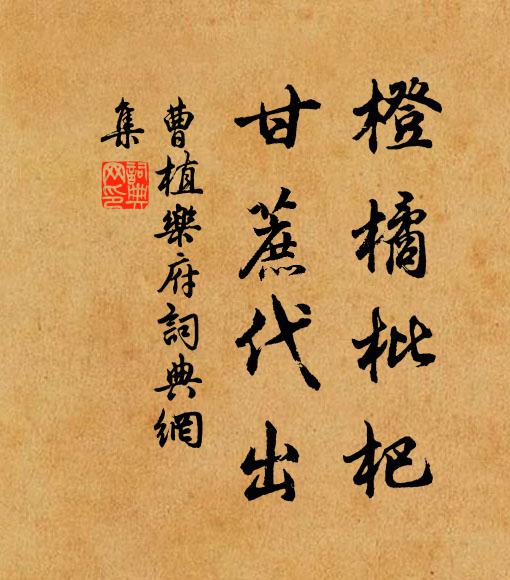 橙橘枇杷
甘蔗代出
曹植樂府詞典網
集
詞典
网印